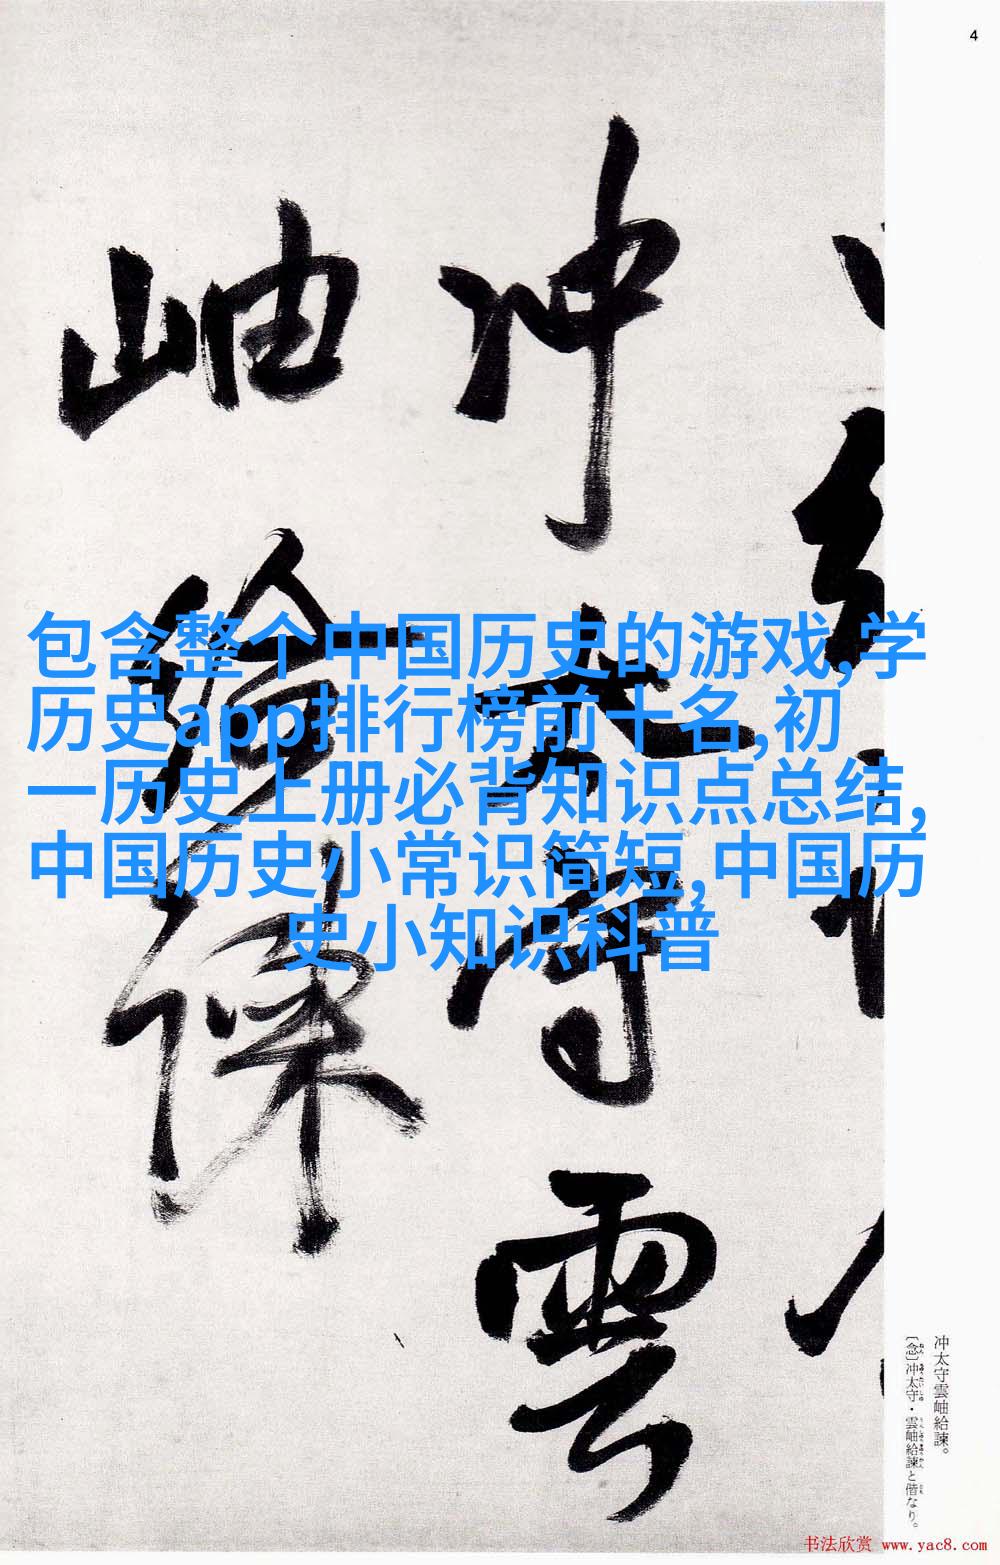 4
冲太守雲
岫給諫
包含整个中国历史的游戏,学
历史app排行榜前十名,初
一历史上册必背知识点总结,
中国历史小常识简短,中国历
史小知识科普
冲太守雲岫給諫。
〔念〕冲太守・雲岫給諫と偕なり。
书法欣赏 www.yac8.com